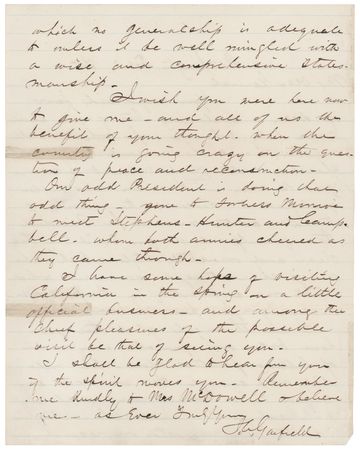 which no generalship is adequate
to unless it be well mingled with
a wise and comprehensive states-
manship.
I wish you were here now
to give me – and all of us the
benefit of your thought. when the
country is going crazy on the ques-
tion of peace and reconstruction –
Our odd President is doing that
odd thing – gone to Fortress Monroe
to meet Stephens – Hunter and Camp-
bell. whom both armies cheered as
they came through –
I have some hopes of visiting
California in the spring on a little
official business – and among the
Chief pleasures of the possible
visit be that of seeing you –
I shall be glad to hear from you
if the spirit moves you – Remember
me kindly to Mrs McDowell & believe
me – as Ever Truly Yours
J. A. Garfield